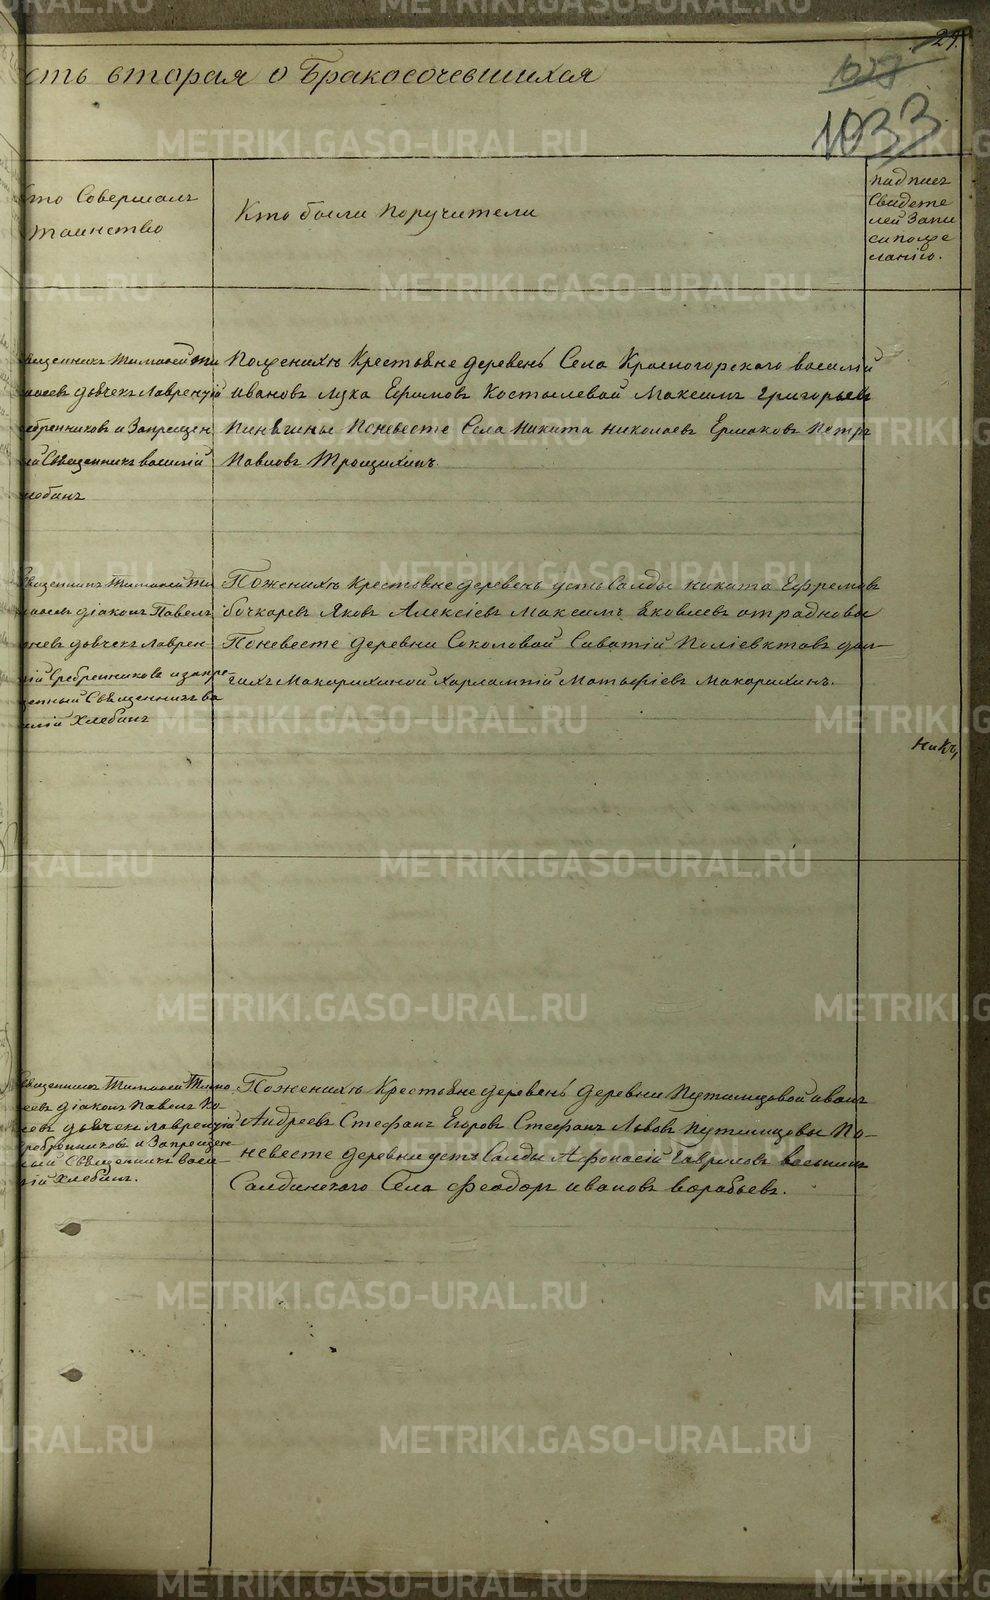 29.
сть вторая о Бракосочевшихся
1033
то Совершалъ
таинство
Кто были поручители
подпись
Свидете
лей Запи
си по же
ланію.
вященникъ Тимофей Ти
дьячекъ Лаврентій
ебренниковъ и Запрещен
й Священникъ василій
лебинъ
По женихѣ Крестьяне деревень Села Красногорскаго василій
ивановъ лука Ефимовъ Костылевой Максимъ Григорьевъ
Пинягины По невесте Села Никита николаевъ Ермаковъ Петръ
Павловъ Трощихинъ.
Священникъ Тимофей Ти
діаконъ Павелъ
дьячекъ лаврен
ій Сребренниковъ и запре-
щенный Священникъ ва
илій Хлебинъ
По женихѣ Крестьяне деревень усть Салды никита Ефремовъ
бочкаревъ Яковъ Алексіевъ Максимъ Яковлевъ отрадновы
По невесте деревни Соколовой Саватій Поліевктовъ
Макарихиной Харлампій Матѳіевъ Макарихинъ.
Священникъ Тимофей Тимо
еевъ діаконъ Павелъ По-
невъ дьячекъ лаврентій
ребренниковъ и Запрещен
ный Священникъ васи
лій Хлебинъ.
По женихѣ Крестьяне деревень деревни Путимцовой иванъ
Андреевъ Стефанъ Егоровъ Стефанъ Львовъ путимцовы По-
невесте деревни усть Салды Афонасій Гавриловъ
Салдинскаго Села Феодоръ ивановъ воробьевъ.
METRIKI.GASO-URAL.RU